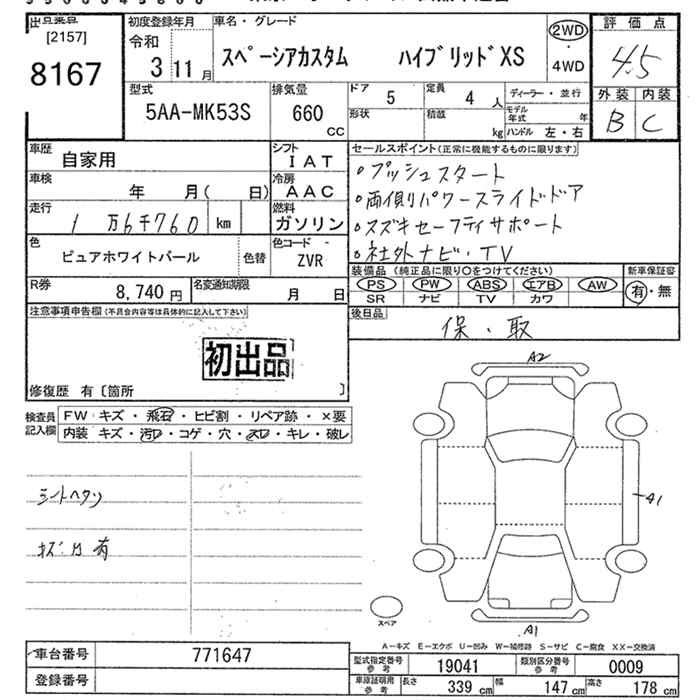 出品番号 初度登録年月 車名・グレード 2WD・4WD 評価点
[2157]
8167
令和 3年 11月
スペーシアカスタム ハイブリッドXS
4.5
型式 5AA-MK53S
排気量 660 CC
ドア 5
定員 4 人
形状 積載 kg
ディーラー・並行
モデル年式 年
ハンドル 左・右
外装 内装
B C
車歴 自家用
シフト IAT
車検 年 月( 日)
冷房 AAC
走行 1万6千760 km
燃料 ガソリン
色 ピュアホワイトパール 色替
色コード ZVR
R券 8,740 円
名変通知期限 月 日
セールスポイント(正常に機能するものに限ります)
・プッシュスタート
・両側パワースライドドア
・スズキセーフティサポート
・社外ナビ・TV
装備品 (純正品に限り○をつけてください) 新車保証書
PS PW ABS エアB AW 有・無
SR ナビ TV カワ
後日品 保・取
注意事項申告欄(不具合内容等は具体的に記入して下さい)
初出品
修復歴 有〔箇所 〕
検査員記入欄
FW キズ・飛石・ヒビ割・リペア跡・×要
内装 キズ・汚れ・コゲ・穴・スレ・キレ・破レ
シートヘタリ
キズ凹有
A2
A1
A1
スペア
A－キズ E－エクボ U－凹み W－補修跡 S－サビ C－腐食 XX－交換済
車台番号 771647
登録番号
型式指定番号 参考 19041
類別区分番号 参考 0009
車庫証明用 参考 長さ 339 cm 幅 147 cm 高さ 178 cm